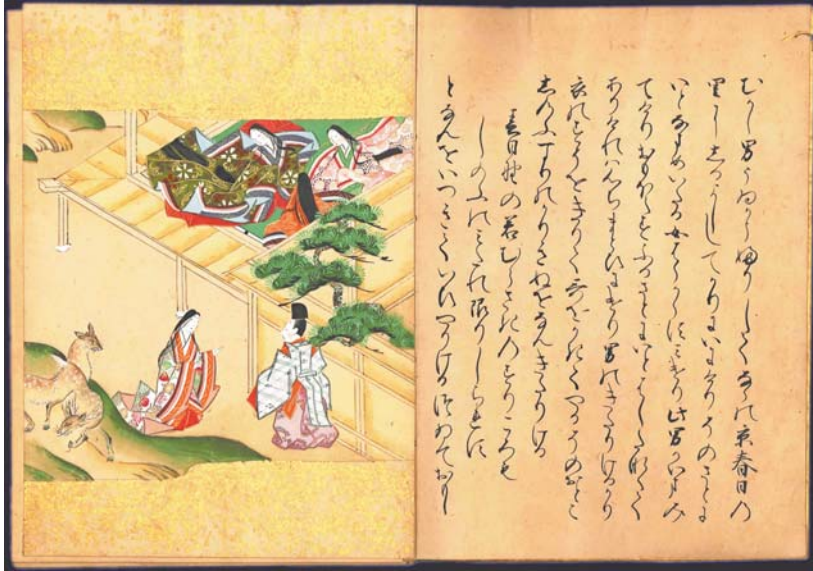 むかし男うゐかうふりしてならの京春日の
里にしるよししてかりにいにけりそのさとに
いとなまめいたる女はらからすみけり此男かいまみ
てけりおもほえすふるさとにいとはしたなくて
ありけれは心ちまとひにけり男のきたりけるかり
衣のすそをきりて哥をかきてやるそのおとこ
しのふすりのかりきぬをなんきたりける
春日野の若むらさきのすりころも
しのふのみたれ限りしられす
となんをいつきていひやりける